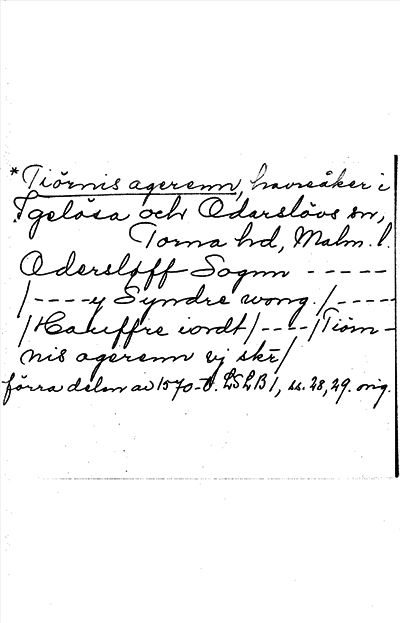 *Tiörnis agerenn, havreåker i
Igelösa och Odarslövs sn,
Torna hd, Malm. l.
Odersløff Sognn -----
/----y Syndre wong./-----
/Hauffre iordt/----/Tiörn-
nis agerenn vj skr/
förra delen av 1570-t. LSLB1, ss. 28, 29. orig.